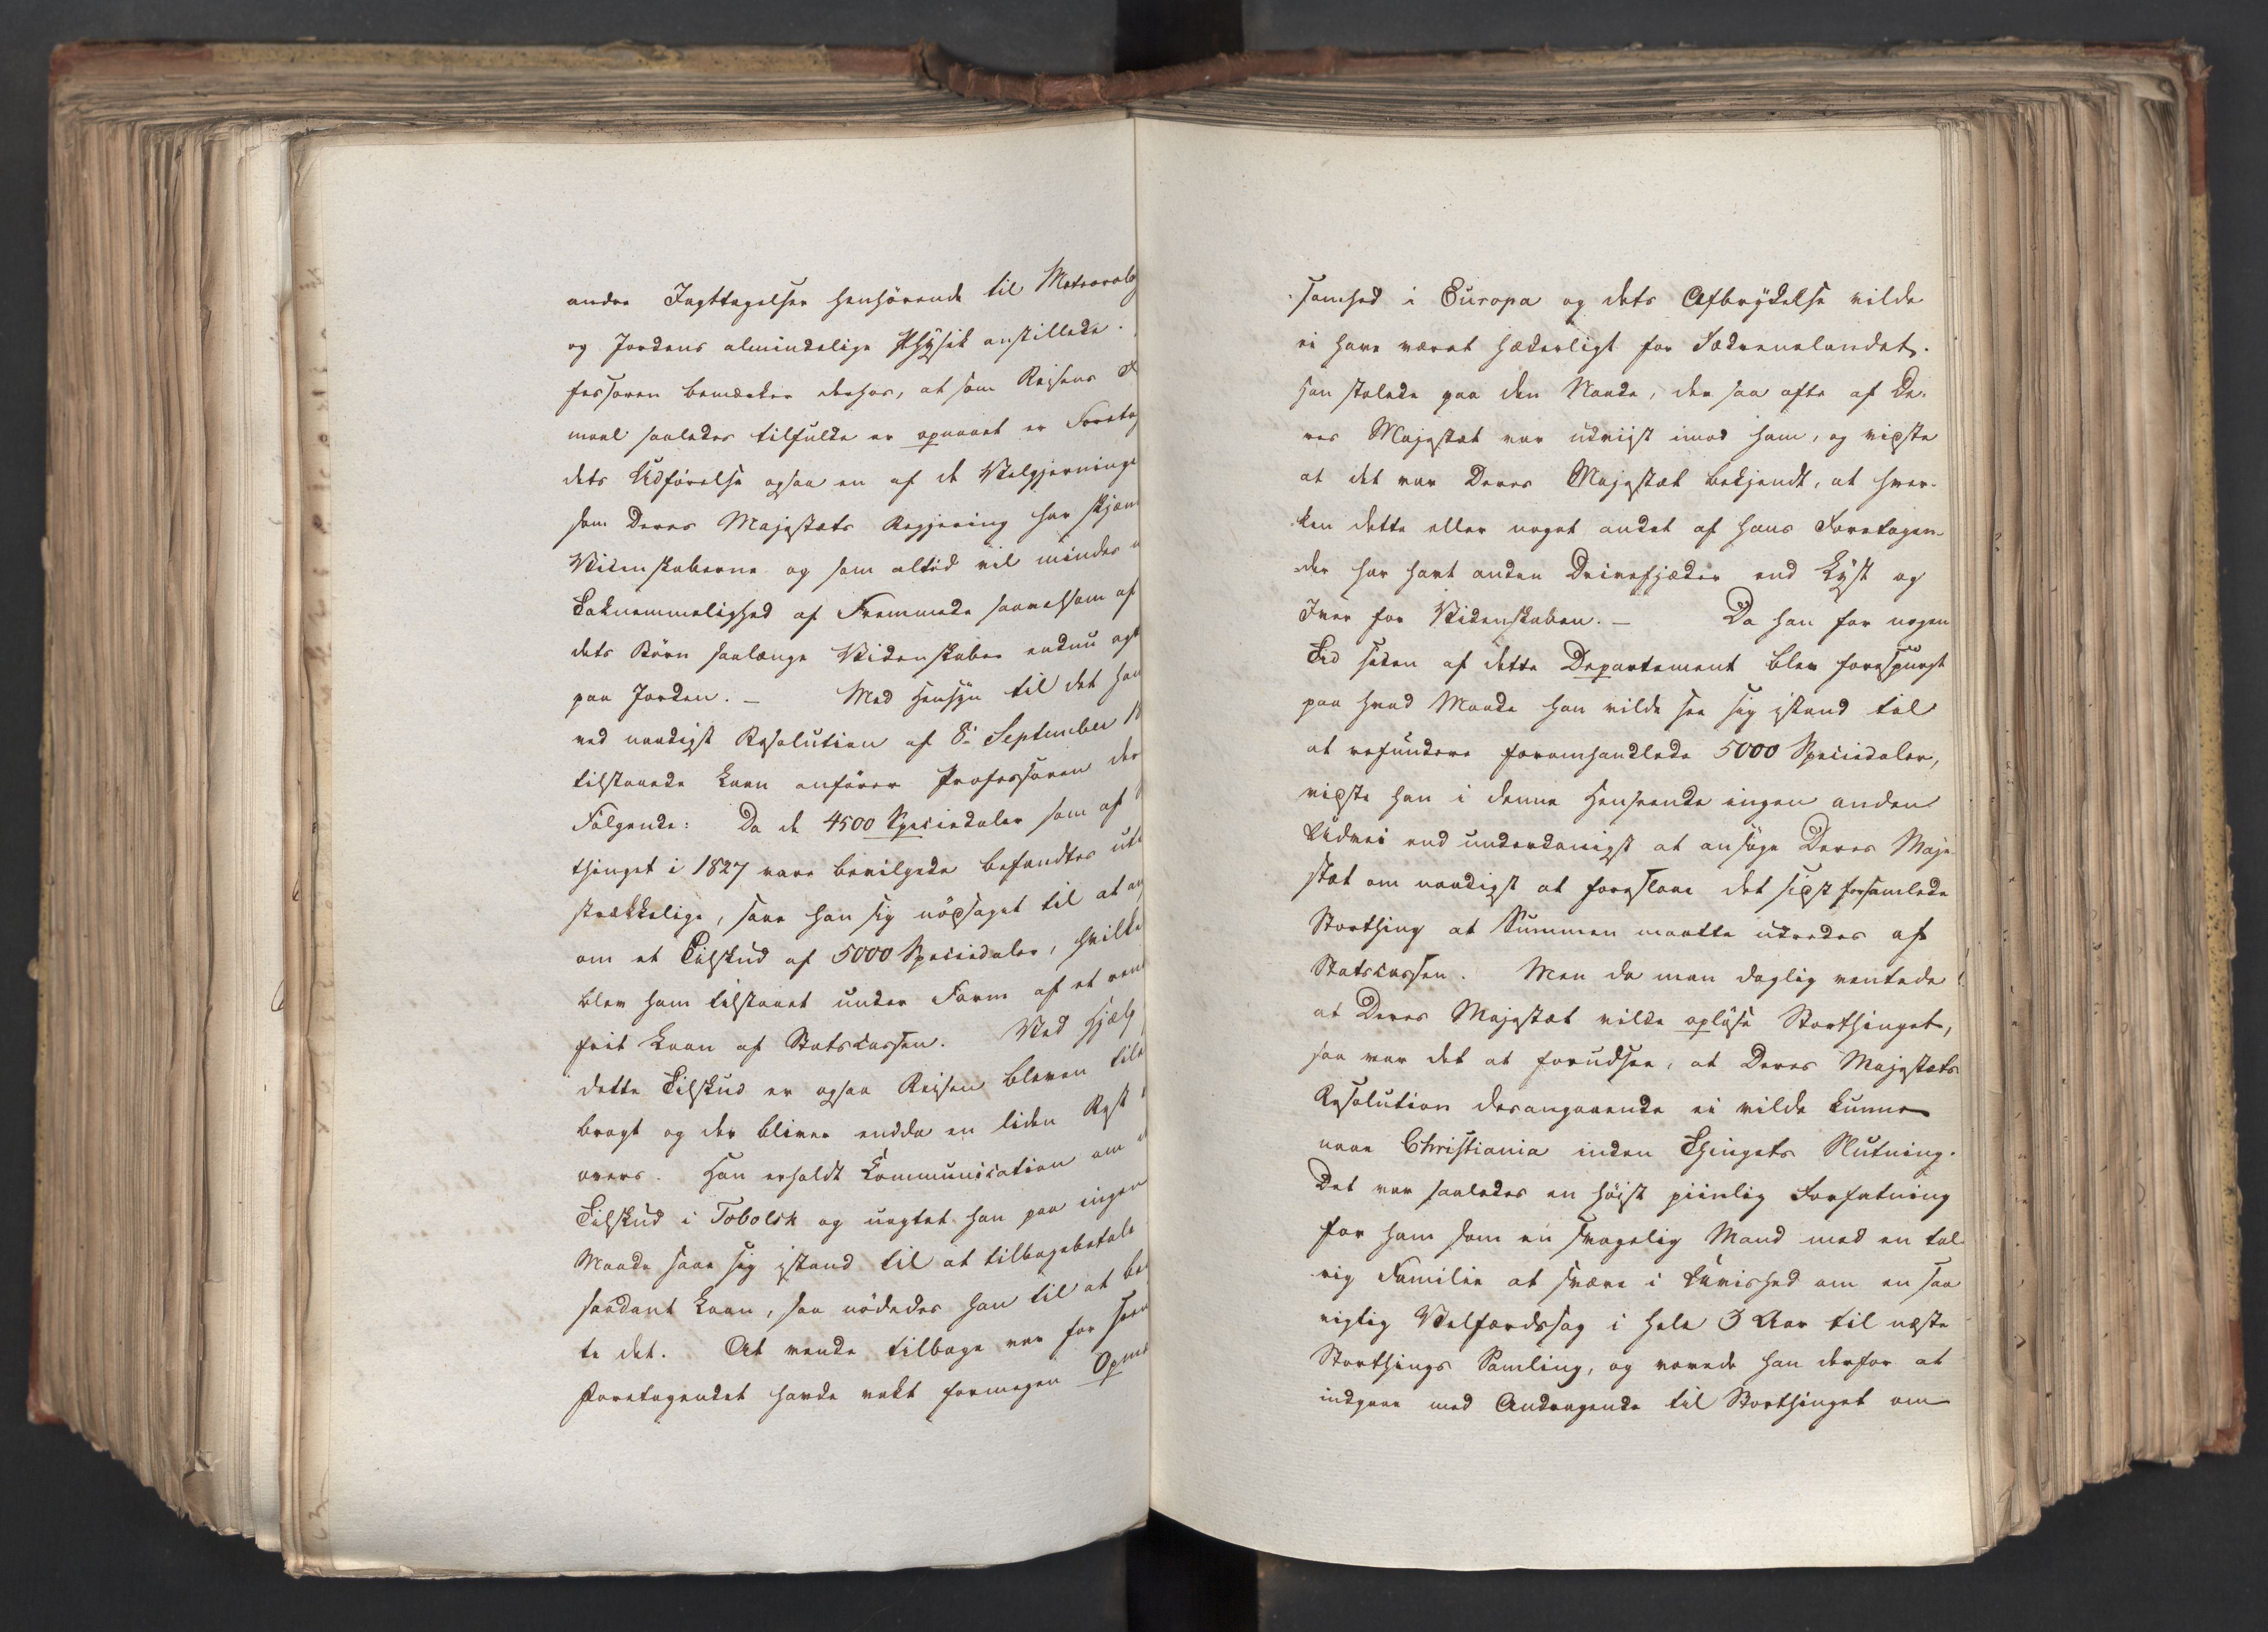 andre Iagttagelser henhörende til Meteorolog
og Jordens almindelige Physik anstillede.
fessoren bemærker derhos, at som Reisens
maal saaledes tilfulde er opnaaet er Foretag
dets Udförelse ogsaa en af de Velgjerninge
som Deres Majestæts Regjering har skjæn
Videnskaberne og som altid vil mindes
Taknemmelighed af Fremmede saavelsom af
dets Börn saalænge Videnskaber endnu agt
paa Jorden. – Med Hensyn til det ham
ved naadigst Resolution af 8de September 18
tilstaaede Laan anförer Professoren der
Fölgende: Da de 4500 Speciedaler som af
thinget i 1827 vare bevilgede befandtes uti
strækkelige, saae han sig nödsaget til at an
om et Tilskud af 5000 Speciedaler, hvilke
blev ham tilstaaet under Form af et ren
frit Laan af Statscassen. Ved Hjelp
dette Tilskud er ogsaa Reisen bleven tile
bragt og der bliver endda en liden Rest
overs. Han erholdt Communication om
Tilskud i Tobolsk og uagtet han paa ingen
Maade saae sig istand til at tilbagebetale
saadant Laan, saa nödedes han til at be
te det. At vende tilbage var for seent
Foretagendet havde vakt formegen Opmæ
somhed i Europa og dets Afbrydelse vilde
ei have været hæderligt for Fædrenelandet.
Han stolede paa den Naade, der saa ofte af De-
res Majestæt var udviist imod ham, og vidste
at det var Deres Majestæt bekjendt, at hver-
ken dette eller noget andet af hans Foretagen-
der har havt anden Drivefjæder end Lyst og
Iver for Videnskaben. – Da han for nogen
Tid siden af dette Departement blev forespurgt
paa hvad Maade han vilde see sig istand til
at refundere foromhandlede 5000 Speciedaler,
vidste han i denne Henseende ingen anden
Udvei end underdanigst at ansöge Deres Maje-
stæt om naadigst at foreslaae det sidst forsamlede
Storthing at Summen maatte udredes af
Statscassen. Men da man daglig ventede
at Deres Majestæt vilde oplöse Storthinget,
saa var det at forudsee, at Deres Majestæts
Resolution desangaaende ei vilde kunne
naae Christiania inden Thingets Slutning.
Det var saaledes en höist piinlig Forfatning
for ham som en svagelig Mand med en tal-
rig Familie at svæve i Uvished om en saa
vigtig Velfærdssag i hele 3 Aar til næste
Storthings Samling, og vovede han derfor at
indgaae med Andragende til Storthinget om